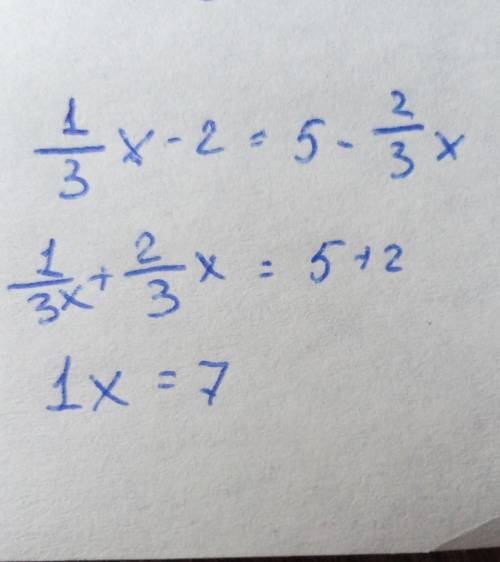 1/3 x - 2 = 5 - 2/3 x
1/3x + 2/3 x = 5 + 2
1x = 7